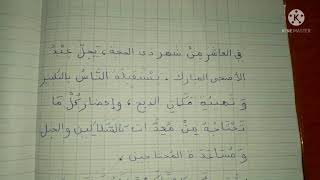 في العاشر من شهر ذي الحجة، يحل عيد
الأضحى المبارك، يستقبله الناس بالتكبير
و تهيئة مكان الذبح، وإحضار كل ما
تحتاجه من معدات كالسكاكين والحبل
و مساعدة المحتاجين.
KINEMASTER